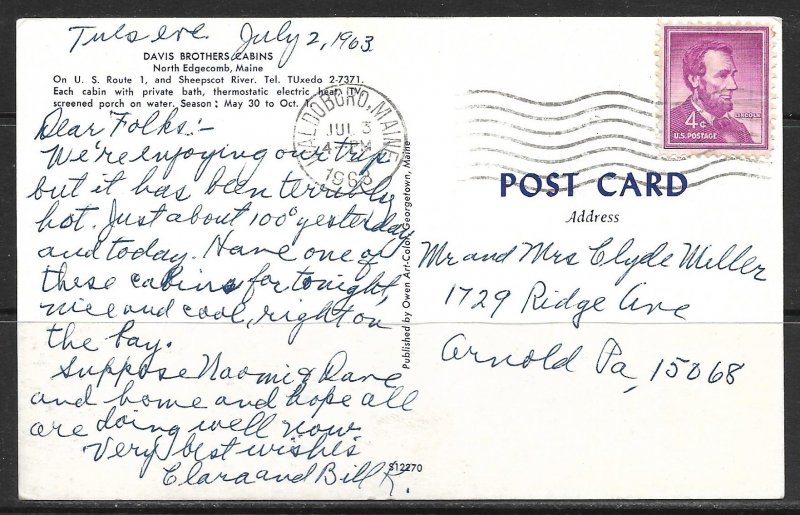 Tues eve. July 2, 1963
DAVIS BROTHERS CABINS
North Edgecomb, Maine
On U. S. Route 1, and Sheepscot River. Tel. TUxedo 2-7371.
Each cabin with private bath, thermostatic electric heat,
screened porch on water. Season: May 30 to Oct.
Dear Folks:-
We're enjoying our trip
but it has been terribly
hot. Just about 100° yesterday
and today. Have one of
these cabins for tonight,
nice and cool, right on
the bay.
Suppose Naomi & Dave
and home and hope all
are doing well now
Very best wishes
Clara and Bill K.
WALDOBORO, MAINE
JUL 3
4 PM
1963
Published by Owen Art-Color, Georgetown, Maine
S12270
LINCOLN
4¢
U.S. POSTAGE
POST CARD
Address
Mr and Mrs Clyde Miller
1729 Ridge Ave
Arnold Pa, 15068